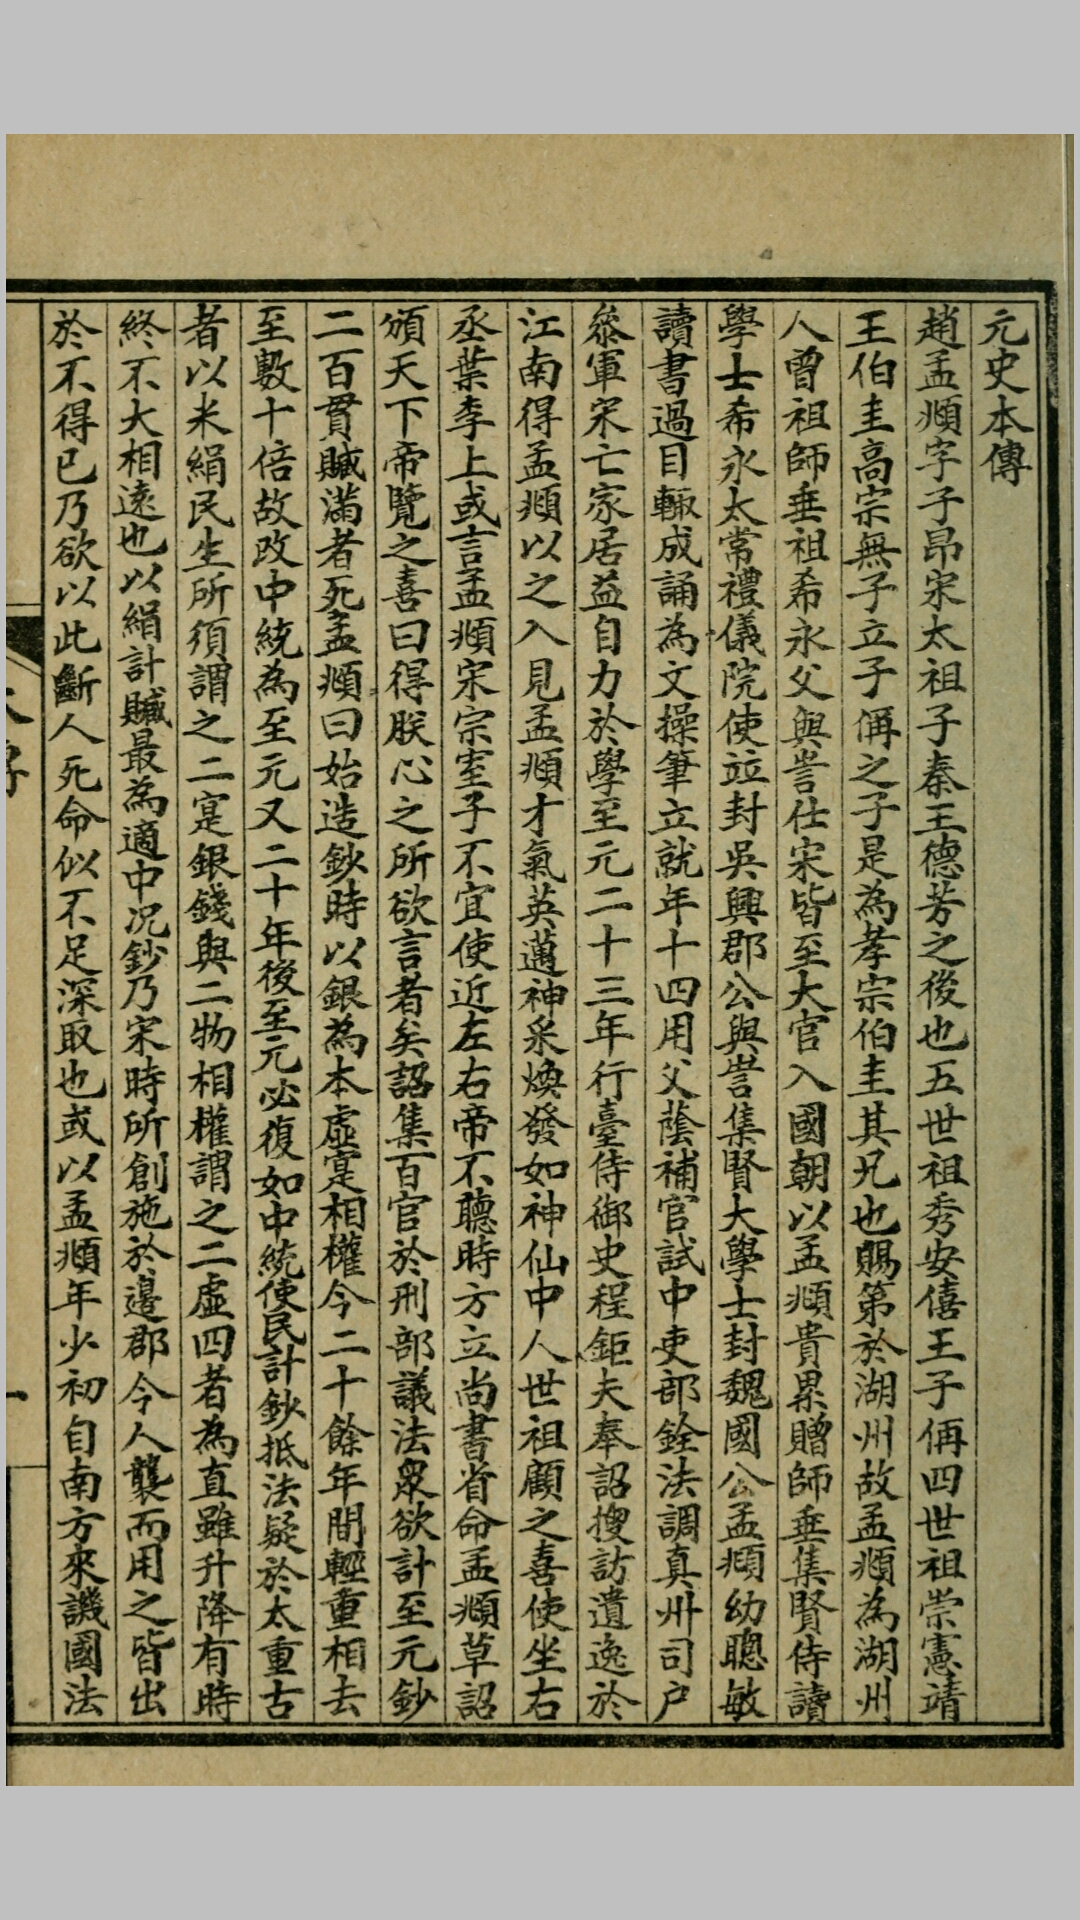 元史本傳
趙孟頫字子昂宋太祖子秦王德芳之後也五世祖秀安僖王子偁四世祖崇憲靖
王伯圭高宗無子立子偁之子是為孝宗伯圭其兄也賜第於湖州故孟頫為湖州
人曾祖師垂祖希永父與訔仕宋皆至大官入國朝以孟頫貴累贈師垂集賢侍讀
學士希永太常禮儀院使竝封吳興郡公與訔集賢大學士封魏國公孟頫幼聰敏
讀書過目輒成誦為文操筆立就年十四用父蔭補官試中吏部銓法調真州司户
叅軍宋亡家居益自力於學至元二十三年行臺侍御史程鉅夫奉詔搜訪遺逸於
江南得孟頫以之入見孟頫才氣英邁神采煥發如神仙中人世祖顧之喜使坐右
丞葉李上或言孟頫宋宗室子不宜使近左右帝不聽時方立尚書省命孟頫草詔
頒天下帝覽之喜曰得朕心之所欲言者矣詔集百官於刑部議法衆欲計至元鈔
二百貫贓滿者死孟頫曰始造鈔時以銀為本虛寔相權今二十餘年間輕重相去
至數十倍故改中統為至元又二十年後至元必復如中統使民計鈔抵法疑於太重古
者以米絹民生所須謂之二寔銀錢與二物相權謂之二虛四者為直雖升降有時
終不大相遠也以絹計贓最為適中况鈔乃宋時所創施於邊郡今人襲而用之皆出
於不得已乃欲以此斷人死命似不足深取也或以孟頫年少初自南方來譏國法